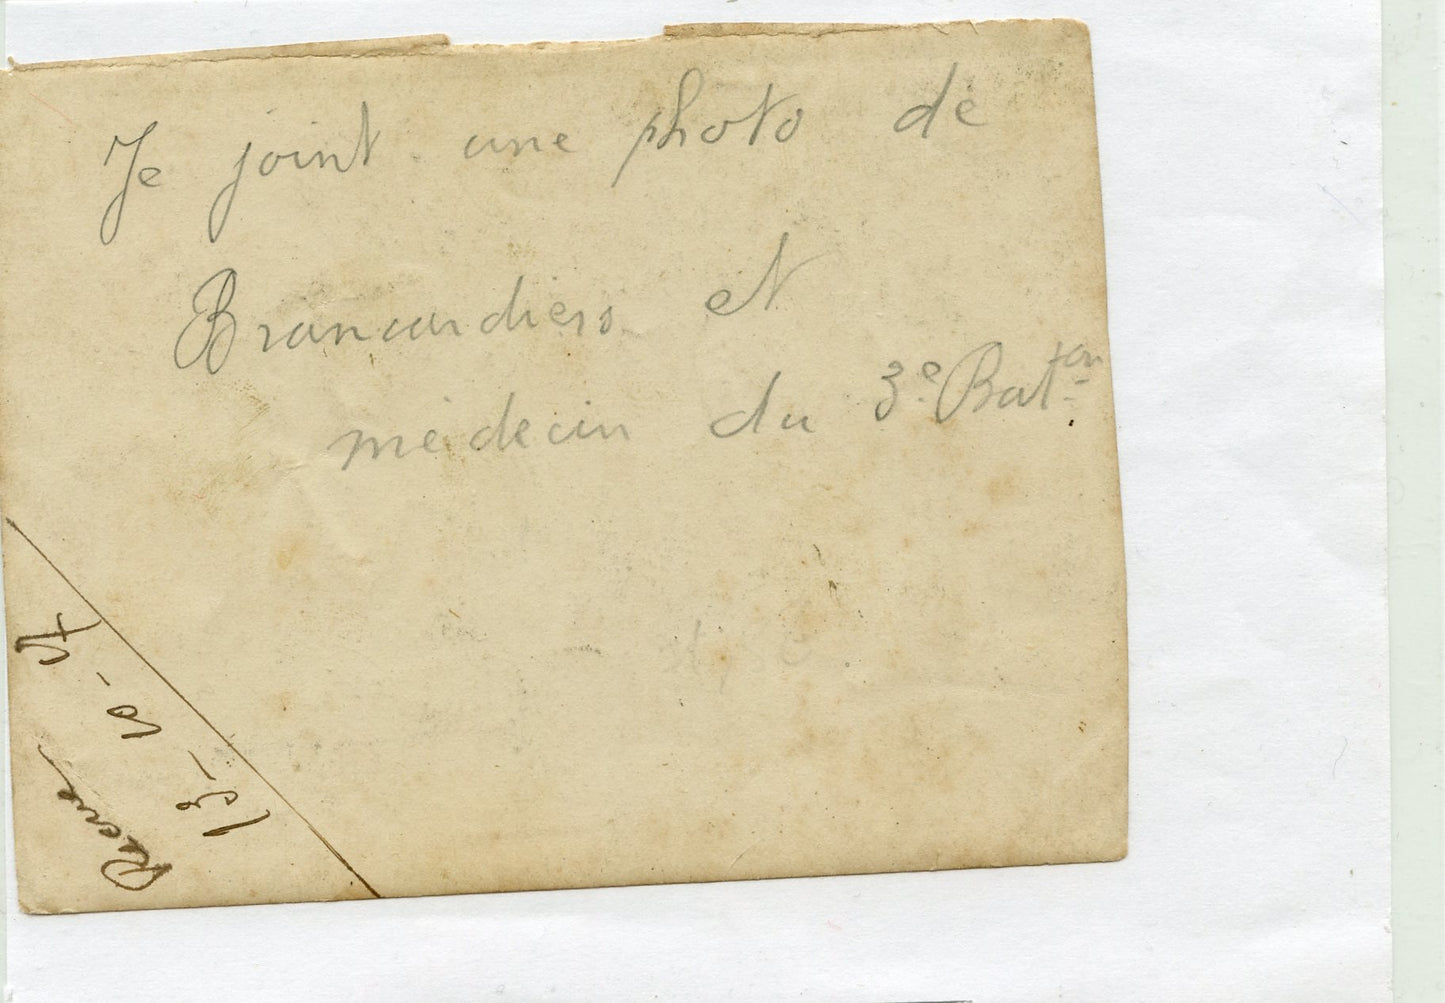 Je joint une photo de
Brancardiers et
médecin du 3e Baton
Recue
13-10-17